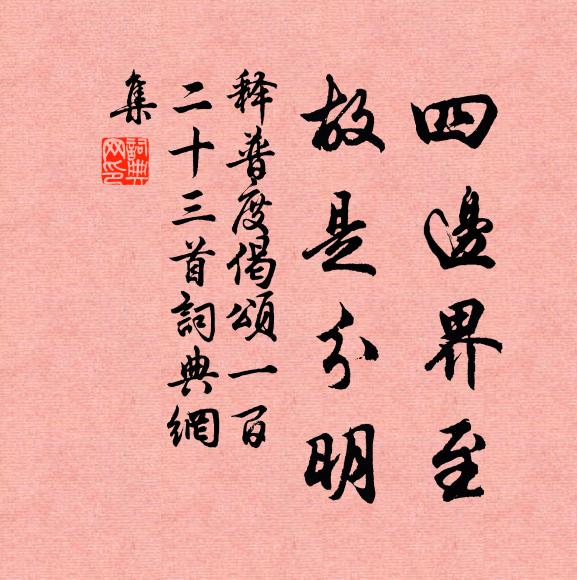 四邊界至
故是分明
释普度偈頌一百
二十三首詞典網
集
詞典网印